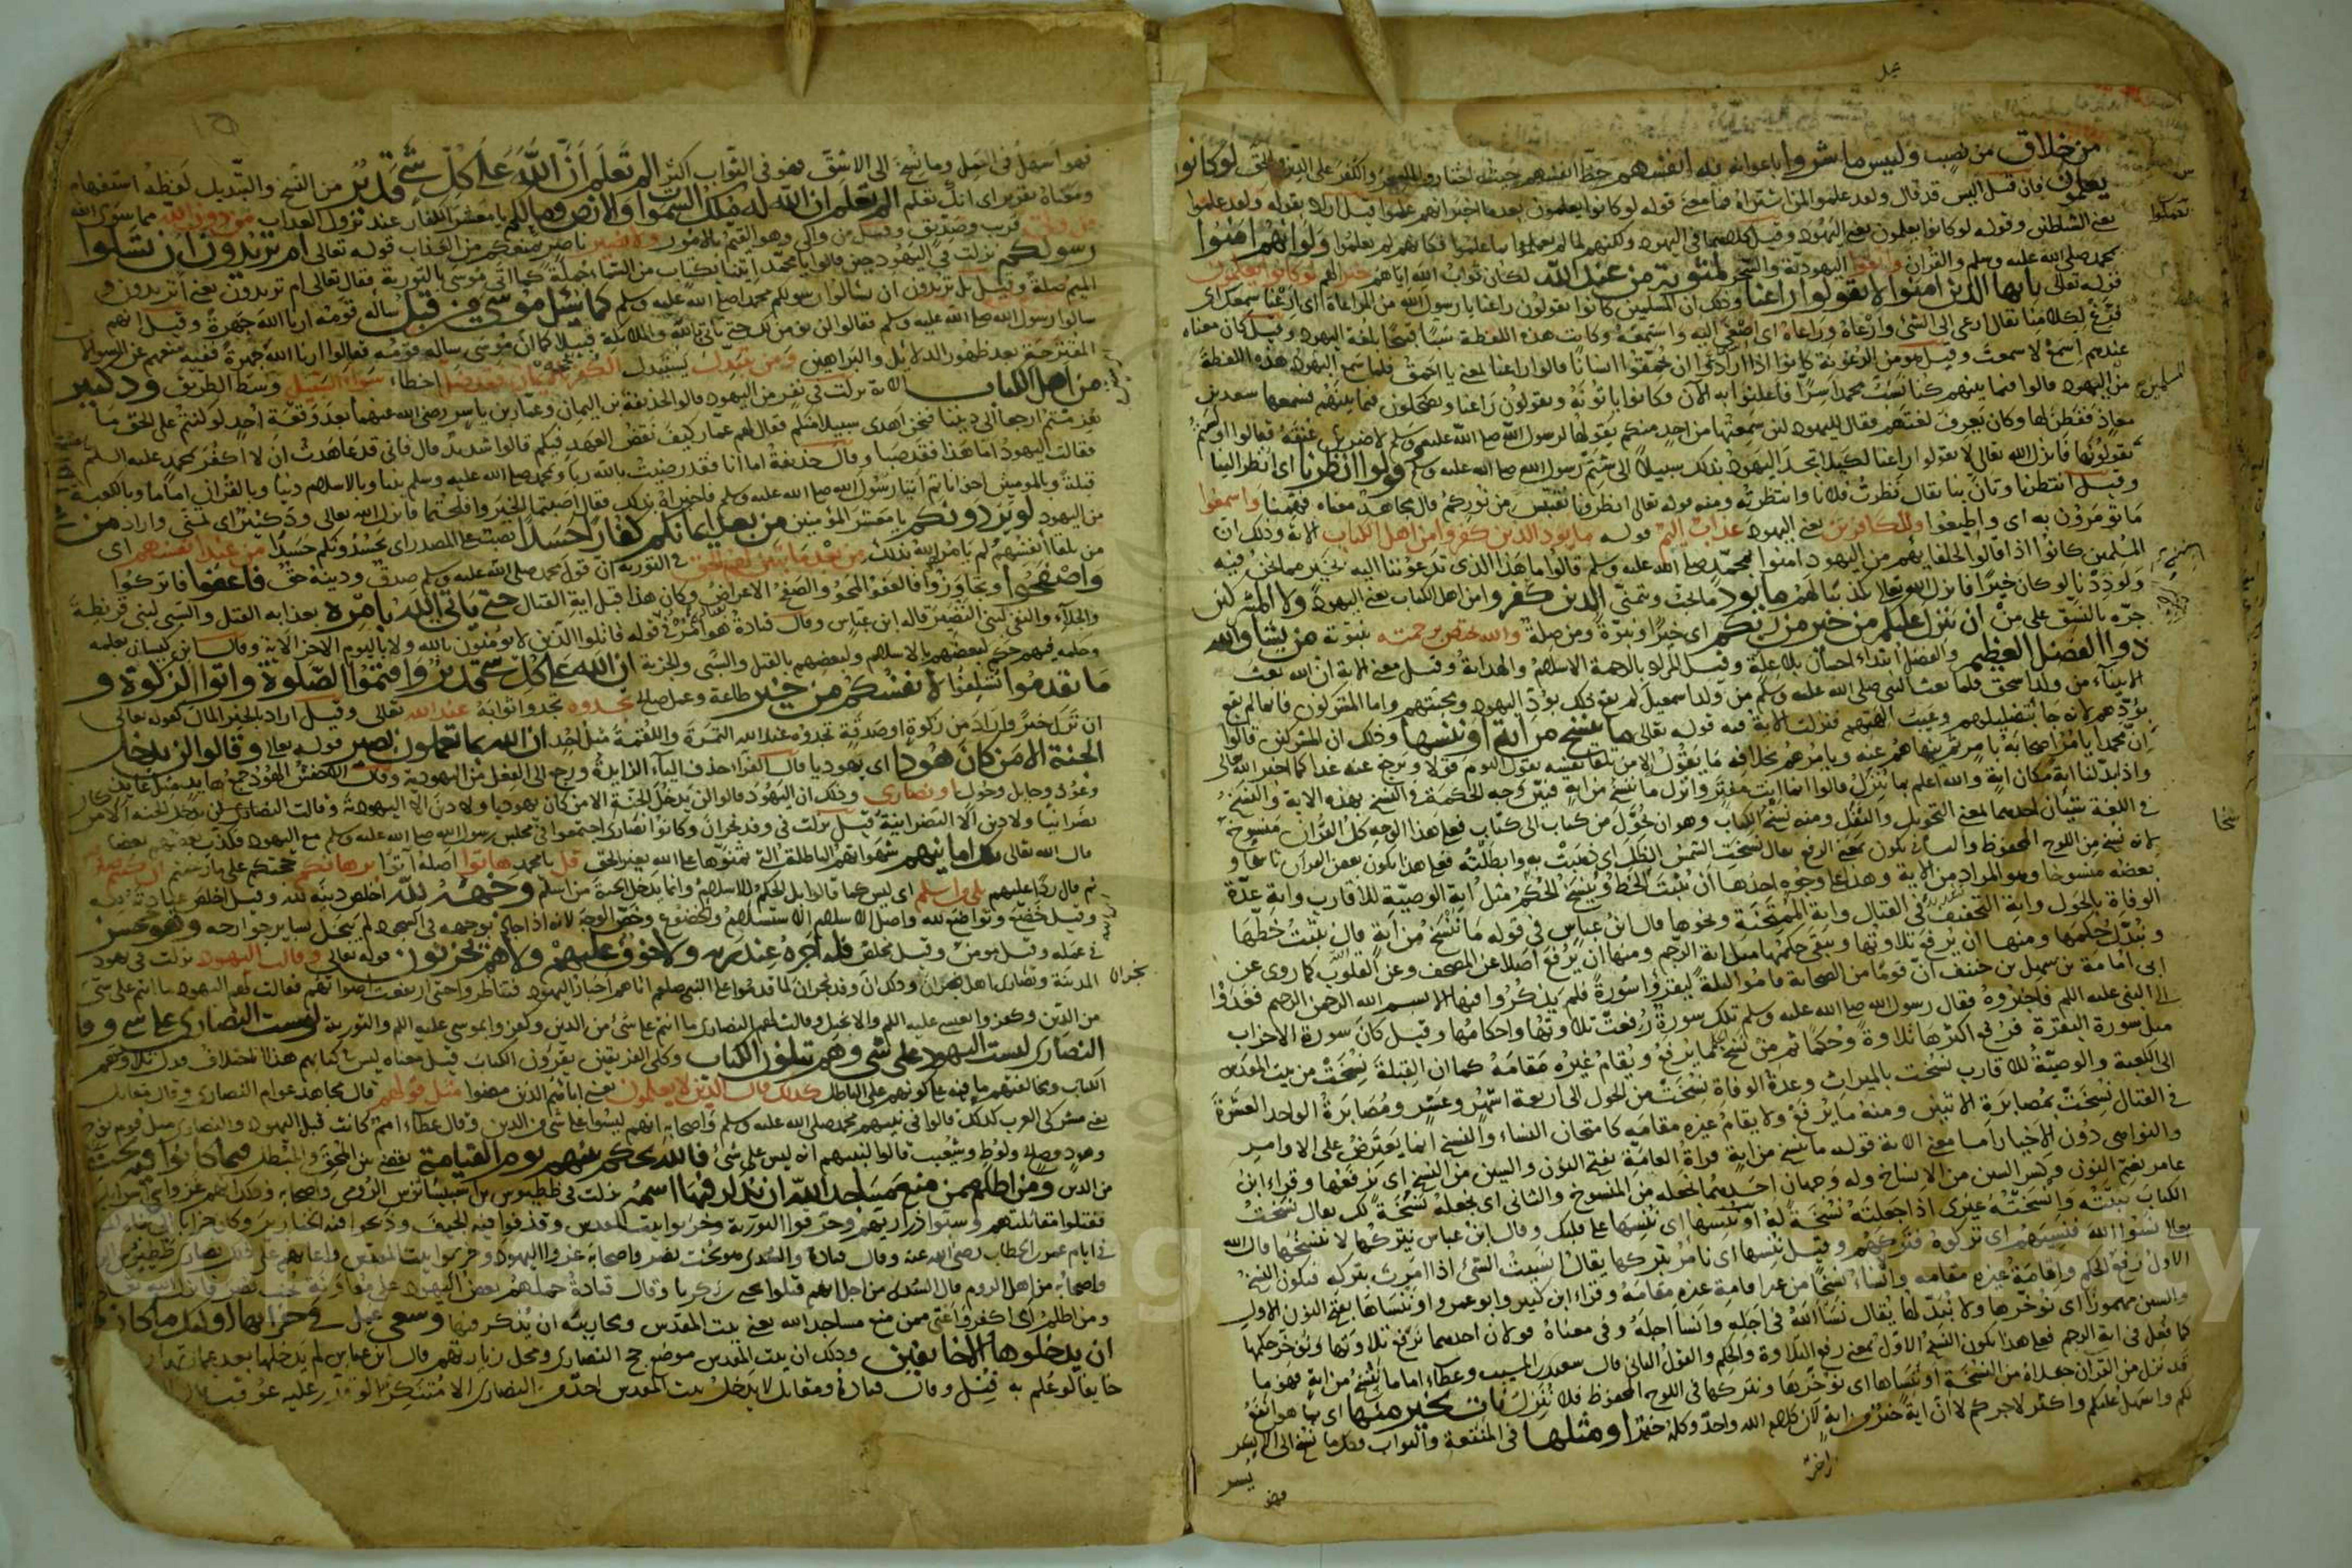 من خلاق من نصيب وليس ما شروا باعوا به به انفسهم حظ انفسهم حيث اختاروا السحر والكفر على الدين والحق لو كانوا
يعلمون فان قيل اليس قد قال ولقد علموا لمن اشتراه فما معنى قوله لو كانوا يعلمون بعد ما اخبر انهم علموا قيل اراد بقوله ولقد علموا
يعني الشياطين وقوله لو كانوا يعلمون يعني اليهود وقيل كلاهما في اليهود ولكنهم لما لم يعملوا بما علموا فكانهم لم يعلموا ولو انهم امنوا
بمحمد صلى الله عليه وسلم والقران واتقوا اليهودية والسحر لمثوبة من عند الله لكان ثواب الله اياهم خير لهم لو كانوا يعلمون
قوله تعالى يا ايها الذين امنوا لا تقولوا راعنا وذلك ان المسلمين كانوا يقولون راعنا يا رسول الله من المراعاة اي ارعنا سمعك اي
فرغ لكلامنا يقال ارعى الى الشئ وارعاه وراعاه اي اصغى اليه واستمعه وكانت هذه اللفظة شيئا قبيحا بلغة اليهود وقيل كان معناه
عندهم اسمع لا سمعت وقيل هو من الرعونة كانوا اذا ارادوا ان يحمقوا انسانا قالوا راعنا بمعنى يا احمق فلما سمع اليهود هذه اللفظة
من اليهود قالوا فيما بينهم كنا نسب محمدا سرا فاعلنوا به الان وكانوا ياتونه ويقولون راعنا ويضحكون فيما بينهم فسمعها سعد بن
معاذ ففطن لها وكان يعرف لغتهم فقال لليهود لئن سمعتها من احد منكم يقولها لرسول الله صلى الله عليه وسلم لاضربن عنقه فقالوا اولستم
تقولونها فانزل الله تعالى لا تقولوا راعنا لكيلا يتخذ اليهود بذلك سبيلا الى شتم رسول الله صلى الله عليه وسلم وقولوا انظرنا اي انظر الينا
وقيل انتظرنا وتان بنا يقال نظرت فلانا وانتظرته ومنه قوله تعالى انظرونا نقتبس من نوركم قال مجاهد معناه فهمنا واسمعوا
ما تؤمرون به اي واطيعوا وللكافرين يعني اليهود عذاب اليم قوله ما يود الذين كفروا من اهل الكتاب الاية وذلك ان
المسلمين كانوا اذا قالوا لحلفائهم من اليهود امنوا بمحمد صلى الله عليه وسلم قالوا ما هذا الذي تدعوننا اليه بخير مما نحن فيه
ولوددنا لو كان خيرا فانزل الله تعالى تكذيبا لهم ما يود ما يحب ويتمنى الذين كفروا من اهل الكتاب يعني اليهود ولا المشركين
جره بالنسق على من ان ينزل عليكم من خير من ربكم اي خير ونبوة ومن صلة والله يختص برحمته بنبوته من يشاء والله
ذو الفضل العظيم والفضل ابتداء احسان بلا علة وقيل المراد بالرحمة الاسلام والهداية وقيل معنى الاية ان الله بعث
الانبياء من ولد اسحق فلما بعث النبي صلى الله عليه وسلم من ولد اسمعيل لم يقع ذلك بود اليهود ومحبتهم واما المشركون فانما لم يقع
بودهم لانه جاء بتضليلهم وعيب الهتهم فنزلت الاية فيه قوله تعالى ما ننسخ من اية او ننسها وذلك ان المشركين قالوا
ان محمدا يامر اصحابه بامر ثم ينهاهم عنه ويامرهم بخلافه ما يقول الا من تلقاء نفسه يقول اليوم قولا ويرجع عنه غدا كما اخبر الله تعالى
واذا بدلنا اية مكان اية والله اعلم بما ينزل قالوا انما انت مفتر وانزل ما ننسخ من اية فبين وجه الحكمة في النسخ بهذه الاية والنسخ
في اللغة شيئان احدهما بمعنى التحويل والنقل ومنه نسخ الكتاب وهو ان يحول من كتاب الى كتاب فعلى هذا الوجه كل القران منسوخ
لانه نسخ من اللوح المحفوظ والثاني يكون بمعنى الرفع يقال نسخت الشمس الظل اي ذهبت به وابطلته فعلى هذا يكون بعض القران ناسخا و
بعضه منسوخا وهو المراد من الاية وهذا على وجوه احدها ان يثبت الخط وينسخ الحكم مثل اية الوصية للاقارب واية عدة
الوفاة بالحول واية التخفيف في القتال واية الممتحنة ونحوها قال ابن عباس في قوله ما ننسخ من اية قال نثبت خطها
ونبدل حكمها ومنها ان يرفع تلاوتها ويبقى حكمها مثل اية الرجم ومنها ان يرفع اصلا عن المصحف وعن القلوب كما روي عن
ابي امامة بن سهيل بن حنيف ان قوما من الصحابة قاموا ليلة ليقرؤا سورة فلم يذكروا منها الا بسم الله الرحمن الرحيم فغدوا
الى النبي عليه السلم فاخبروه فقال رسول الله صلى الله عليه وسلم تلك سورة رفعت تلاوتها واحكامها وقيل كان سورة الاحزاب
مثل سورة البقرة فرفع اكثرها تلاوة وحكما ثم من نسخ الحكم ما يرفع ويقام غيره مقامه كما ان القبلة نسخت من بيت المقدس
الى الكعبة والوصية للاقارب نسخت بالميراث وعدة الوفاة نسخت من الحول الى اربعة اشهر وعشر ومصابرة الواحد العشرة
في القتال نسخت بمصابرة الاثنين ومنه ما يرفع ولا يقام غيره مقامه كامتحان النساء والنسخ انما يعترض على الاوامر
والنواهي دون الاخبار اما معنى الاية قوله ما ننسخ من اية قراة العامة بفتح النون والسين من النسخ اي نرفعها وقراء ابن
عامر بضم النون وكسر السين من الانساخ وله وجهان احدهما نجعله من المنسوخ والثاني اي نجعله نسخة لك يقال نسخت
الكتاب كتبته وانسخته غيري اذا جعلته نسخة له او ننسها اي ننسها على قلبك وقال ابن عباس نتركها لا ننسخها قال الله
تعالى نسوا الله فنسيهم اي تركوه فتركهم وقيل ننسها اي نامر بتركها يقال انسيت الشئ اذا امرت بتركه فيكون النسخ
الاول رفع الحكم واقامة غيره مقامه والانساء نسخا من غير اقامة غيره مقامه وقراء ابن كثير وابو عمرو او ننساها بفتح النون الاول
والسين مهموزا اي نؤخرها ولا نبدلها يقال نسا الله في اجله وانسا اجله وفي معناه قولان احدهما نرفع تلاوتها ونؤخر حكمها
كما فعل في اية الرجم فعلى هذا يكون النسخ الاول بمعنى رفع التلاوة والحكم والقول الثاني قال سعيد بن المسيب وعطاء اما ما ننسخ من اية فهو ما
قد نزل من القران جعلاه من النسخة او ننساها اي نؤخرها ونتركها في اللوح المحفوظ فلا تنزل نات بخير منها اي بما هو انفع
لكم واسهل عليكم واكثر لاجركم لا ان اية خير من اية لان كلام الله واحد وكله خير او مثلها في المنفعة والثواب فكل ما نسخ الى الايسر
فهو اسهل في العمل وما نسخ الى الاشق فهو في الثواب اكثر الم تعلم ان الله على كل شئ قدير من النسخ والتبديل لفظه استفهام
ومعناه تقرير اي انك تعلم الم تعلم ان الله له ملك السموات والارض وما لكم يا معشر الكفار عند نزول العذاب من دون الله مما سوى الله
من ولي قريب وصديق وقيل من والي وهو القيم بالامور ولا نصير ناصر يمنعكم من العذاب قوله تعالى ام تريدون ان تسئلوا
رسولكم نزلت في اليهود حين قالوا يا محمد ايتنا بكتاب من السماء جملة كما اتى موسى بالتورية فقال تعالى ام تريدون يعني اتريدون و
الميم صلة وقيل بل تريدون ان تسالوا رسولكم محمدا صلى الله عليه وسلم كما سئل موسى من قبل ساله قومه ارنا الله جهرة وقيل انهم
سالوا رسول الله صلى الله عليه وسلم فقالوا لن نؤمن لك حتى تاتي بالله والملائكة قبيلا كما ان موسى ساله قومه فقالوا ارنا الله جهرة ففيه منعهم عن السوالات
المقترحة بعد ظهور الدلائل والبراهين ومن يتبدل يستبدل الكفر بالايمان فقد ضل اخطا سواء السبيل وسط الطريق ود كثير
من اهل الكتاب الاية نزلت في نفر من اليهود قالوا لحذيفة بن اليمان وعمار بن ياسر رضي الله عنهما بعد وقعة احد لو كنتم على الحق ما
هزمتم ارجعا الى ديننا فنحن اهدى سبيلا منكم فقال لهم عمار كيف نقض العهد فيكم قالوا شديد قال فاني قد عاهدت ان لا اكفر بمحمد عليه السلم
فقالت اليهود اما هذا فقد صبا وقال حذيفة اما انا فقد رضيت بالله ربا وبمحمد صلى الله عليه وسلم نبيا وبالاسلام دينا وبالقران اماما وبالكعبة
قبلة وبالمومنين اخوانا ثم اتيا رسول الله صلى الله عليه وسلم فاخبراه بذلك فقال اصبتما الخير وافلحتما فانزل الله تعالى ود كثير اي تمنى واراد
من اليهود لو يردونكم يا معشر المؤمنين من بعد ايمانكم كفارا حسدا نصب على المصدر اي يحسدونكم حسدا من عند انفسهم اي
من تلقاء انفسهم لم يامر الله بذلك من بعد ما تبين لهم الحق في التورية ان قول محمد صلى الله عليه وسلم صدق ودينه حق فاعفوا فاتركوا
واصفحوا وتجاوزوا فالعفو المحو والصفح الاعراض وكان هذا قبل اية القتال حتى ياتي الله بامره بعذابه القتل والسبي لبني قريظة
والجلاء والنفي لبني النضير قاله ابن عباس وقال قتادة هو امره في قوله قاتلوا الذين لا يؤمنون بالله ولا باليوم الاخر الاية وقال ابن كيسان بعلمه
وحكمه فيهم حكم لبعضهم بالاسلام ولبعضهم بالقتل والسبي والجزية ان الله على كل شئ قدير واقيموا الصلوة واتوا الزكوة و
ما تقدموا تسلفوا لانفسكم من خير طاعة وعمل صالح تجدوه تجدوا ثوابه عند الله تعالى وقيل اراد بالخير المال كقوله تعالى
ان ترك خيرا واراد من زكوة او صدقة تجدوه عند الله التمرة واللقمة مثل احد ان الله بما تعملون بصير قوله تعالى وقالوا لن يدخل
الجنة الا من كان هودا اي يهوديا قال الفراء حذف الياء الزايدة ورجع الى الفعل من اليهودية وقال الاخفش الهود جمع هايد مثل عايد
وعوذ وحايل وحول او نصارى وذلك ان اليهود قالوا لن يدخل الجنة الا من كان يهوديا ولا دين الا اليهودية وقالت النصارى لن يدخل الجنة الا من كان
نصرانيا ولا دين الا النصرانية قيل نزلت في وفد نجران وكانوا نصارى اجتمعوا في مجلس رسول الله صلى الله عليه وسلم مع اليهود فكذب بعضهم بعضا
قال الله تعالى تلك امانيهم شهواتهم الباطلة التي تمنوها على الله بغير الحق قل يا محمد هاتوا اصله اتوا برهانكم حجتكم على ما زعمتم ان كنتم صادقين
ثم قال ردا عليهم بلى من اسلم اي ليس كما قالوا بل الحكم للاسلام وانما يدخل الجنة من اسلم وجهه لله اخلص دينه لله وقيل اخلص عبادته لله
وقيل خضع وتواضع لله واصل الاسلام الاستسلام والخضوع وخص الوجه لانه اذا جاد بوجهه في السجود لم يبخل بساير جوارحه وهو محسن
في عمله وقيل مومن وقيل مخلص فله اجره عند ربه ولا خوف عليهم ولا هم يحزنون قوله تعالى وقالت اليهود نزلت في يهود
المدينة ونصارى اهل نجران وذلك ان وفد نجران لما قدموا على النبي صلعم اتاهم احبار اليهود فتناظروا حتى ارتفعت اصواتهم فقالت لهم اليهود ما انتم على شئ
من الدين وكفروا بعيسى عليه السلم والانجيل وقالت لهم النصارى ما انتم على شئ من الدين وكفروا بموسى عليه السلم والتورية ليست النصارى على شئ وقالت
النصارى ليست اليهود على شئ وهم يتلون الكتاب وكلى الفريقين يقرؤن الكتاب قيل معناه ليس في كتابهم هذا الاختلاف فدل تلاوتهم
الكتاب ومخالفتهم ما فيه على كونهم على الباطل كذلك قال الذين لا يعلمون يعني اباءهم الذين مضوا مثل قولهم قال مجاهد عوام النصارى وقال مقاتل
يعني مشركي العرب كذلك قالوا في نبيهم محمد صلى الله عليه وسلم واصحابه انهم ليسوا على شئ من الدين وقال عطاء امم كانت قبل اليهود والنصارى مثل قوم نوح
وهود وصالح ولوط وشعيب قالوا لنبيهم انه ليس على شئ فالله يحكم بينهم يوم القيامة يقضي بين المحق والمبطل فيما كانوا فيه يختلفون
من الدين ومن اظلم ممن منع مساجد الله ان يذكر فيها اسمه نزلت في ططيوس بن اسيسيانوس الرومي واصحابه وذلك انهم غزوا بني اسرائيل
فقتلوا مقاتلتهم وسبوا ذراريهم وحرقوا التورية وخربوا بيت المقدس وقذفوا فيه الجيف وذبحوا فيه الخنازير وكان خرابا الى ان بناه المسلمون
في ايام عمر بن الخطاب رضي الله عنه وقال قتادة والسدي هو بخت نصر واصحابه غزوا اليهود وخربوا بيت المقدس واعانهم على ذلك نصارى ططيوس الرومي
واصحابه من اهل الروم قال السدي من اجل انهم قتلوا يحيى بن زكريا وقال قتادة حملهم بغض اليهود على معاونة بخت نصر فانزل الله تعالى
ومن اظلم اي اكفر واعتى ممن منع مساجد الله يعني بيت المقدس ومحاريبه ان يذكر فيها وسعى عمل في خرابها اولئك ما كان لهم
ان يدخلوها الا خايفين وذلك ان بيت المقدس موضع حج النصارى ومحل زيارتهم قال ابن عباس لم يدخلها بعد عمارتها
خايفا لو علم به قتل وقال قتادة ومقاتل لا يدخل بيت المقدس احد من النصارى الا متنكرا لو قدر عليه عوقب